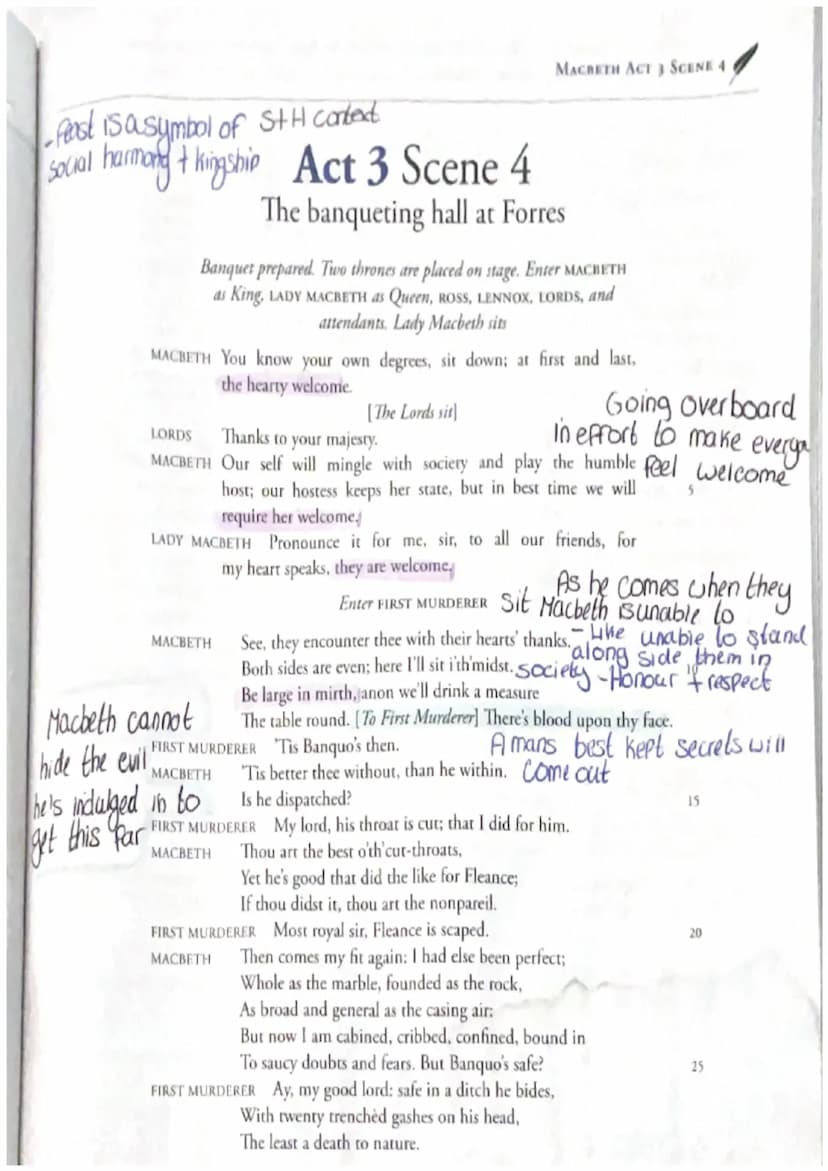 MACBETH ACT 3 SCENE 4
- feast is a symbol of S+H context
social harmony + kingship
Act 3 Scene 4
The banqueting hall at Forres
Banquet prepared. Two thrones are placed on stage. Enter MACBETH
as King, LADY MACBETH as Queen, ROSS, LENNOX, LORDS, and
attendants. Lady Macbeth sits
MACBETH You know your own degrees, sit down; at first and last,
the hearty welcome.
[The Lords sit]
Going overboard
in effort to make
feel welcome
LORDS Thanks to your majesty.
MACBETH Our self will mingle with society and play the humble
host; our hostess keeps her state, but in best time we will 5
require her welcome.
LADY MACBETH Pronounce it for me, sir, to all our friends, for
my heart speaks, they are welcome.
Enter FIRST MURDERER
As he comes when they
sit Macbeth is unable to
- Like unable to stand
along side them in
society - Honour + respect
MACBETH See, they encounter thee with their hearts' thanks.
Both sides are even; here I'll sit i'th'midst. 10
Be large in mirth, anon we'll drink a measure
The table round. [To First Murderer] There's blood upon thy face.
Macbeth cannot
hide the evil
he's indulged in to
get this far
FIRST MURDERER 'Tis Banquo's then.
A mans best kept secrets will
come out
MACBETH 'Tis better thee without, than he within.
Is he dispatched? 15
FIRST MURDERER My lord, his throat is cut; that I did for him.
MACBETH Thou art the best o'th'cut-throats,
Yet he's good that did the like for Fleance;
If thou didst it, thou art the nonpareil.
FIRST MURDERER Most royal sir, Fleance is scaped. 20
MACBETH Then comes my fit again: I had else been perfect;
Whole as the marble, founded as the rock,
As broad and general as the casing air:
But now I am cabined, cribbed, confined, bound in
To saucy doubts and fears. But Banquo's safe? 25
FIRST MURDERER Ay, my good lord: safe in a ditch he bides,
With twenty trenchèd gashes on his head,
The least a death to nature.